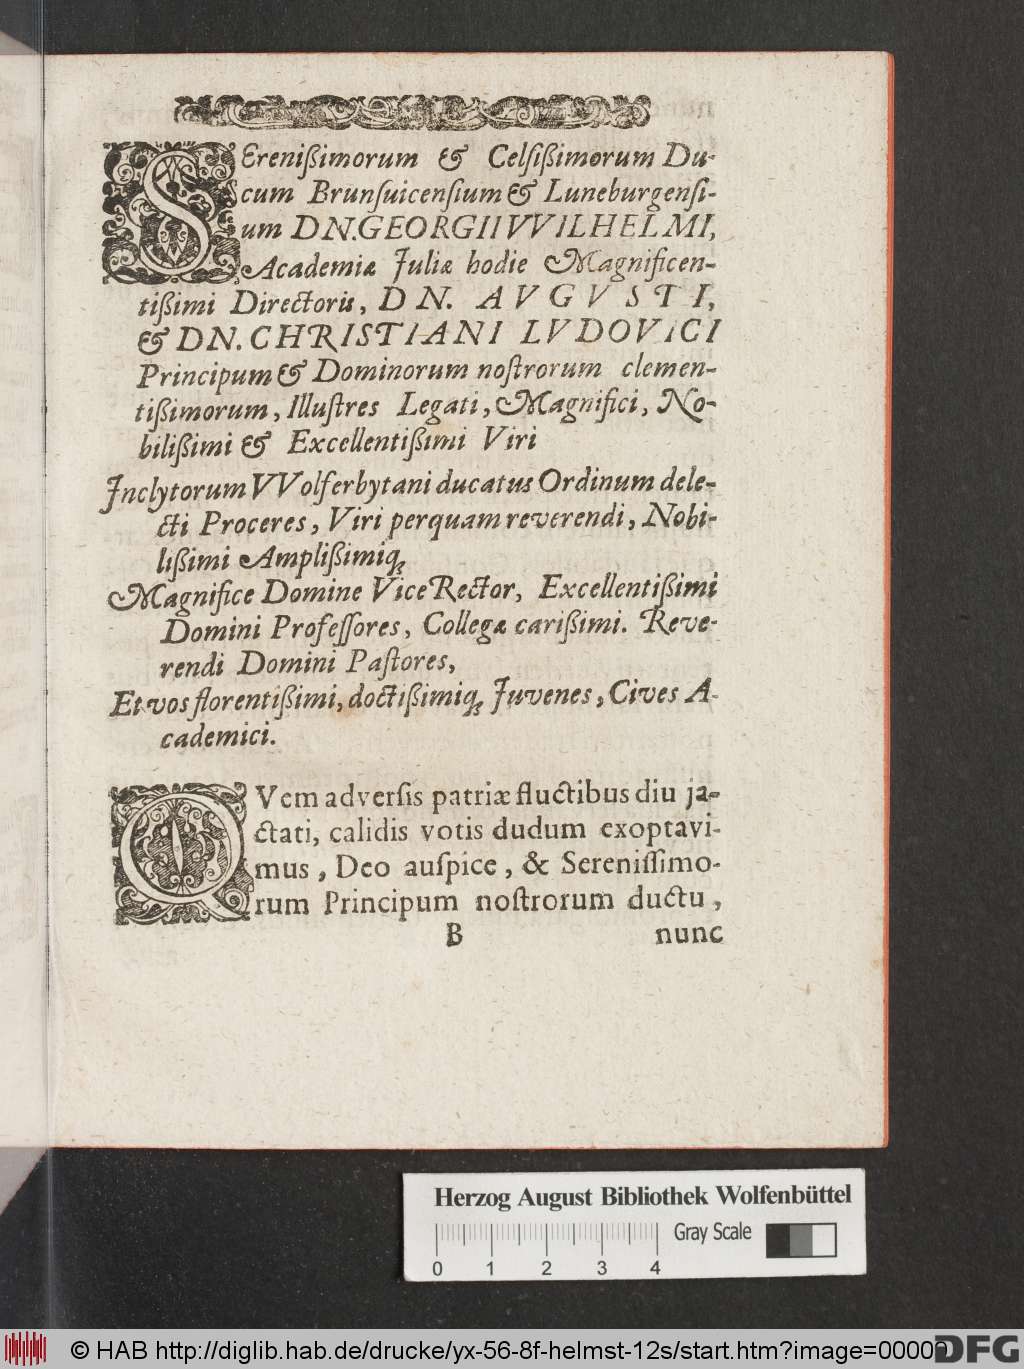 SErenißimorum & Celsißimorum Du-
cum Brunsuicensium & Luneburgensi-
um DN. GEORGII VVILHELMI,
Academiæ Juliæ hodie Magnificen-
tißimi Directoris, DN. AVGVSTI,
& DN. CHRISTIANI LVDOVICI
Principum & Dominorum nostrorum clemen-
tißimorum, Illustres Legati, Magnifici, No-
bilißimi & Excellentißimi Viri
Inclytorum VVolferbytani ducatus Ordinum dele-
cti Proceres, Viri perquam reverendi, Nobi-
lißimi Amplißimiq;
Magnifice Domine ViceRector, Excellentißimi
Domini Professores, Collegæ carißimi. Reve-
rendi Domini Pastores,
Et vos florentißimi, doctißimiq; Juvenes, Cives A-
cademici.
QVem adversis patriæ fluctibus diu ja-
ctati, calidis votis dudum exoptavi-
mus, Deo auspice, & Serenissimo-
rum Principum nostrorum ductu,
B nunc
Herzog August Bibliothek Wolfenbüttel
Gray Scale
0 1 2 3 4
© HAB http://diglib.hab.de/drucke/yx-56-8f-helmst-12s/start.htm?image=00009
DFG